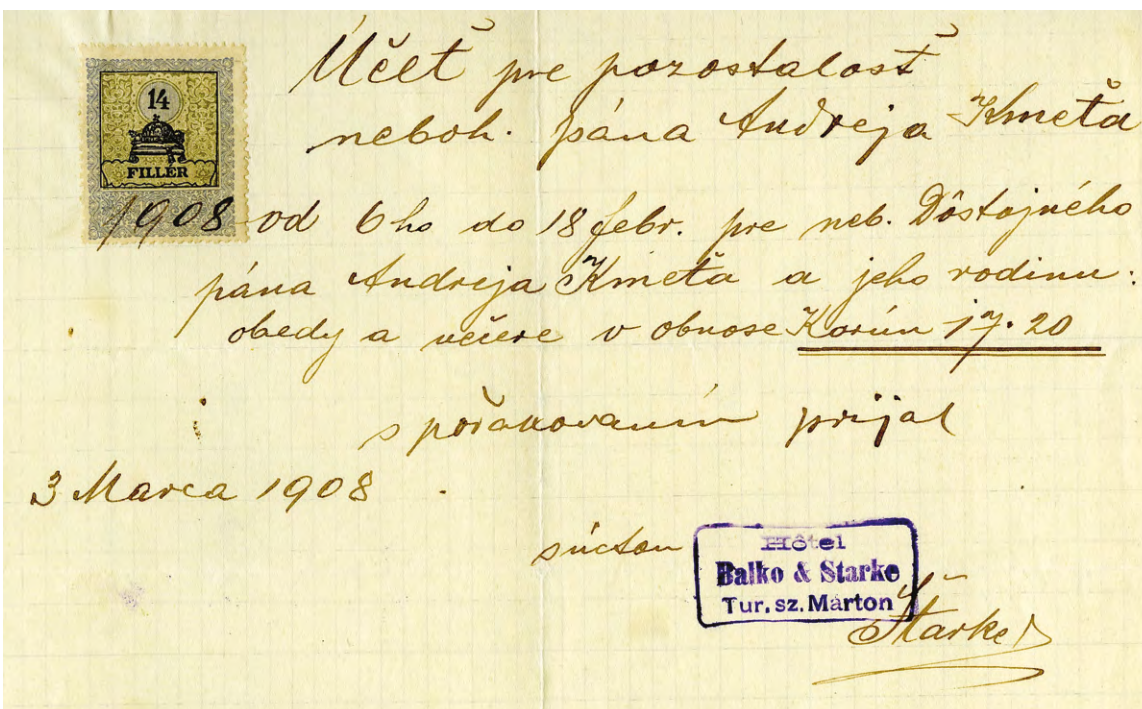 Účeť pre pozostalosť
neboh. pána Andreja Kmeťa
14
FILLÉR
1908 od 6 ho do 18 febr. pre neb. Dôstojného
pána Andreja Kmeťa a jeho rodinu:
obedy a večere v obnose Korún 17.20
s poďakovaním prijal
3 Marca 1908
súctou
Hôtel
Balko & Starke
Tur. sz. Márton
Štarke